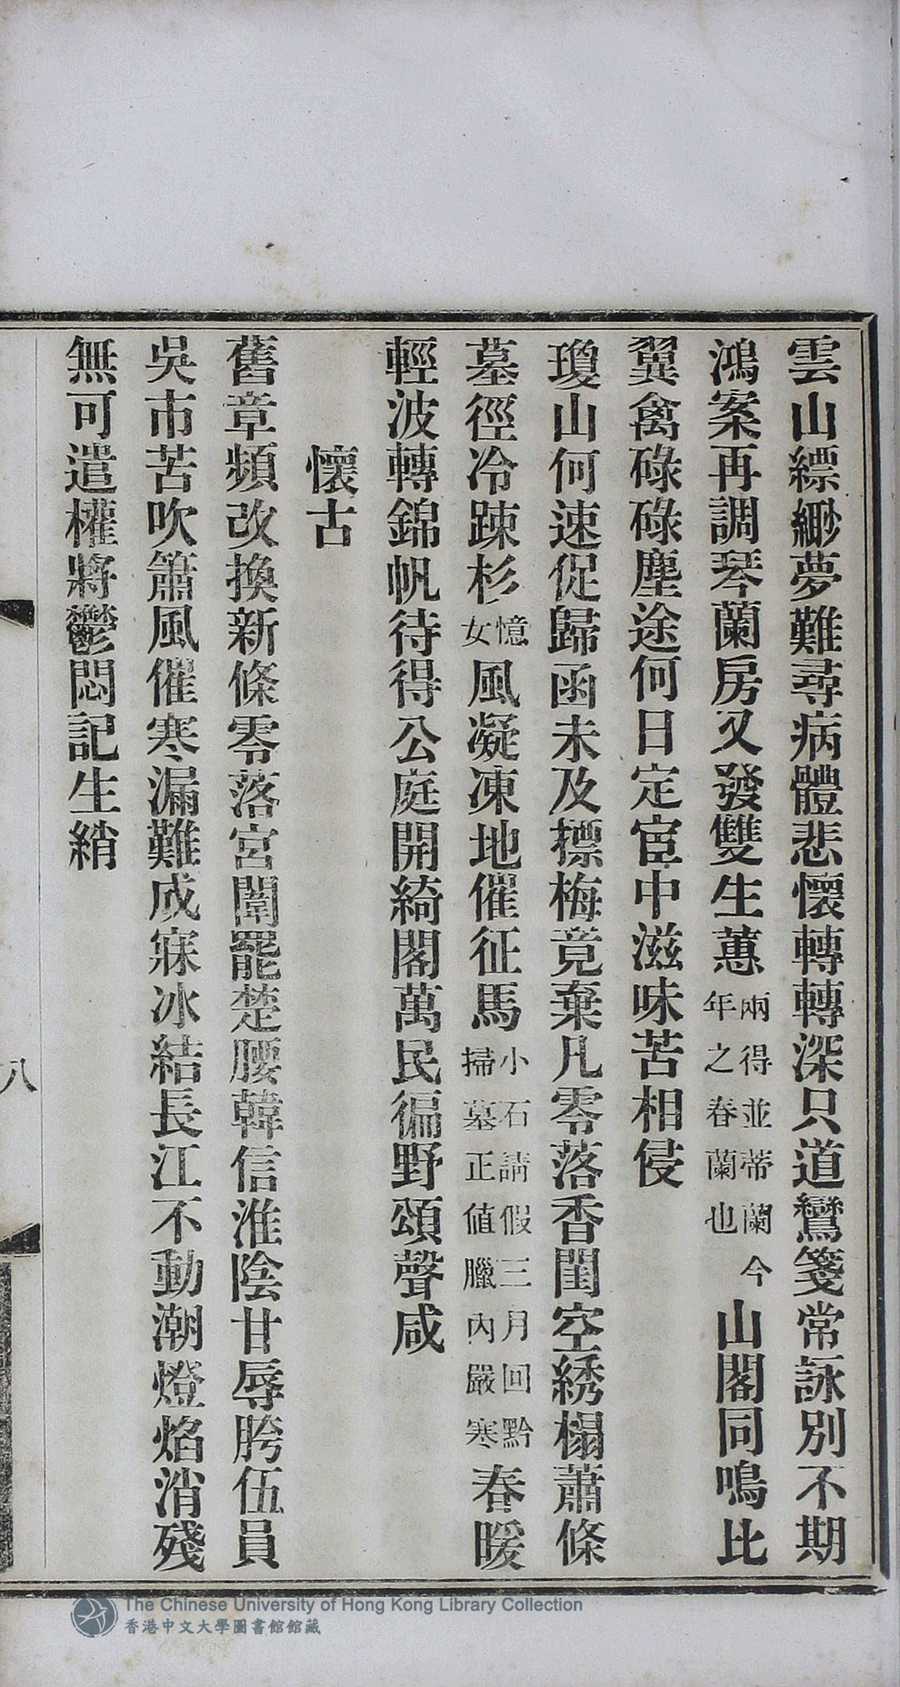 雲山縹緲夢難尋病體悲懷轉轉深只道鸞箋常詠別不期
鴻案再調琴蘭房又發雙生蕙兩得並蒂蘭今年之春蘭也山閣同鳴比
翼禽碌碌塵途何日定宦中滋味苦相侵
瓊山何速促歸函未及摽梅竟棄凡零落香閨空綉榻蕭條
墓徑冷踈杉憶女風凝凍地催征馬小石請假三月回黔掃墓正值臘內嚴寒春暖
輕波轉錦帆待得公庭開綺閣萬民徧野頌聲咸
懷古
舊章頻改換新條零落宮闈罷楚腰韓信淮陰甘辱胯伍員
吳市苦吹簫風催寒漏難成寐冰結長江不動潮燈焰消殘
無可遣權將鬱悶記生綃
八
The Chinese University of Hong Kong Library Collection
香港中文大學圖書館館藏